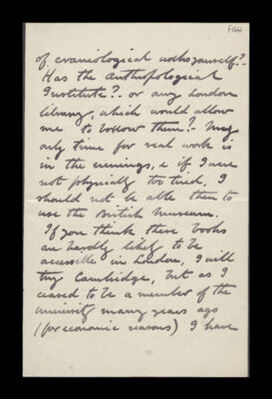 of craniological works yourself?
Has the Anthropological
Institute? or any London
library, which would allow
me to borrow them? My
only time for real work is
in the evenings, & if I were
not physically too tired, I
should not be able then to
use the British Museum.
If you think these books
are hardly likely to be
accessible in London, I will
try Cambridge, but as I
ceased to be a member of the
University many years ago
(for economic reasons) I have